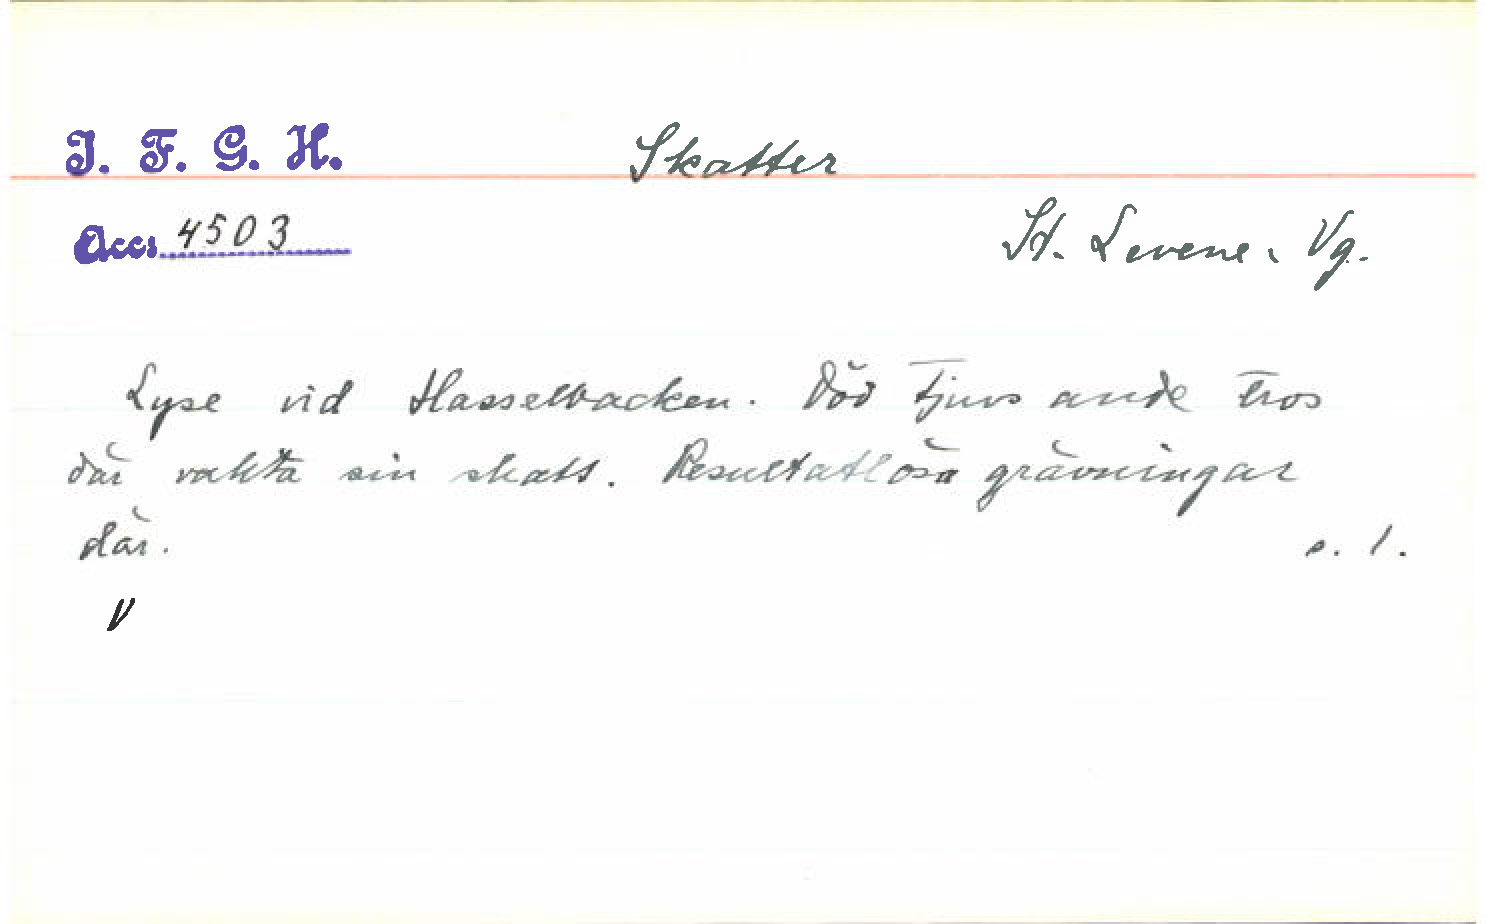 I. F. G. H.
Skatter
Accs 4503
St. Levene, Vg.
Lyse vid Hasselbacken. Död tjuvs ande tros
där vakta sin skatt. Resultatlösa grävningar
där.
s. 1.
V